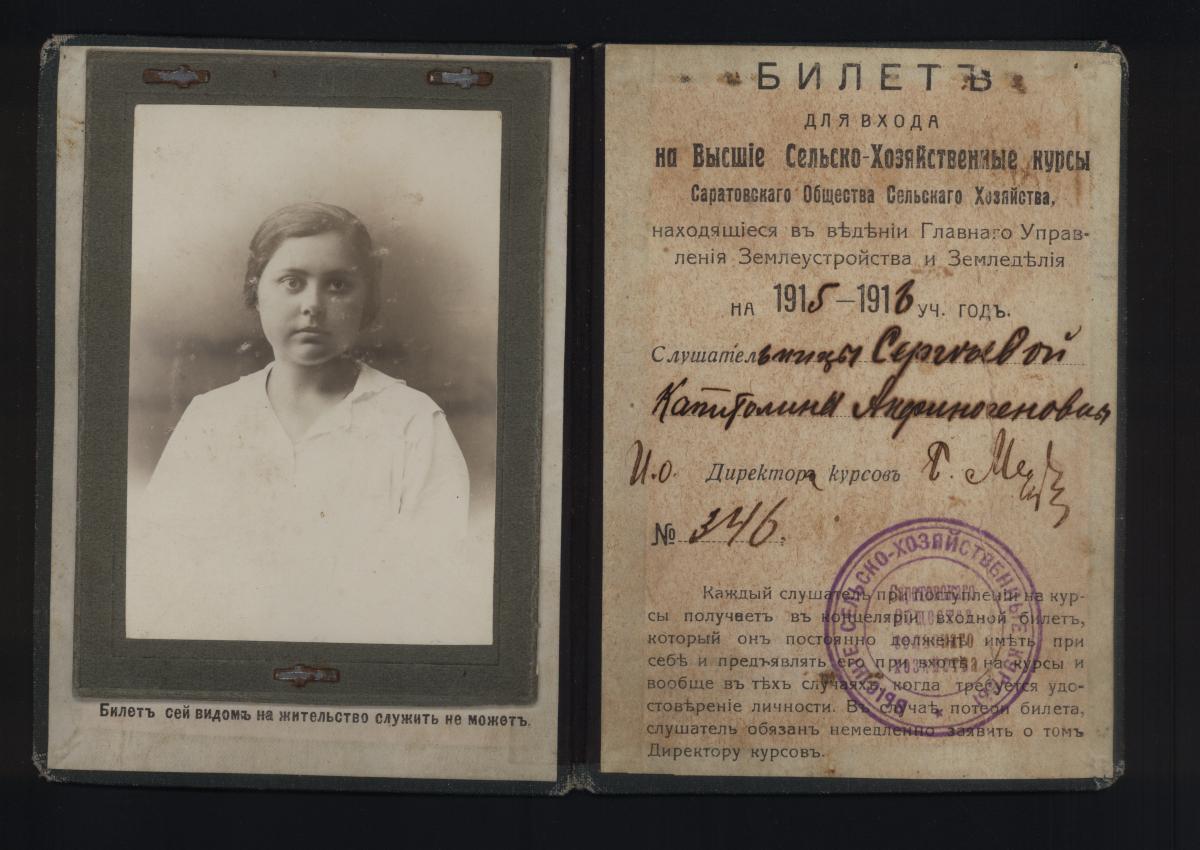 БИЛЕТЪ
ДЛЯ ВХОДА
на Высшіе Сельско-Хозяйственные курсы
Саратовскаго Общества Сельскаго Хозяйства,
находящіеся въ вѣдѣніи Главнаго Управ-
ленія Землеустройства и Земледѣлія
НА 1915–1916 уч. годъ.
Слушательницы Сергѣевой
Капитолины Анфиногеновны
И.о. Директора курсовъ
№ 346.
Каждый слушатель при поступленіи на кур-
сы получаетъ въ канцеляріи входной билетъ,
который онъ постоянно долженъ имѣть при
себѣ и предъявлять его при входѣ на курсы и
вообще въ тѣхъ случаяхъ, когда требуется удо-
стовѣреніе личности. Въ случаѣ потери билета,
слушатель обязанъ немедленно заявить о томъ
Директору курсовъ.
ВЫСШІЕ СЕЛЬСКО-ХОЗЯЙСТВЕННЫЕ КУРСЫ
Саратовскаго
Общества
Билетъ сей видомъ на жительство служить не можетъ.